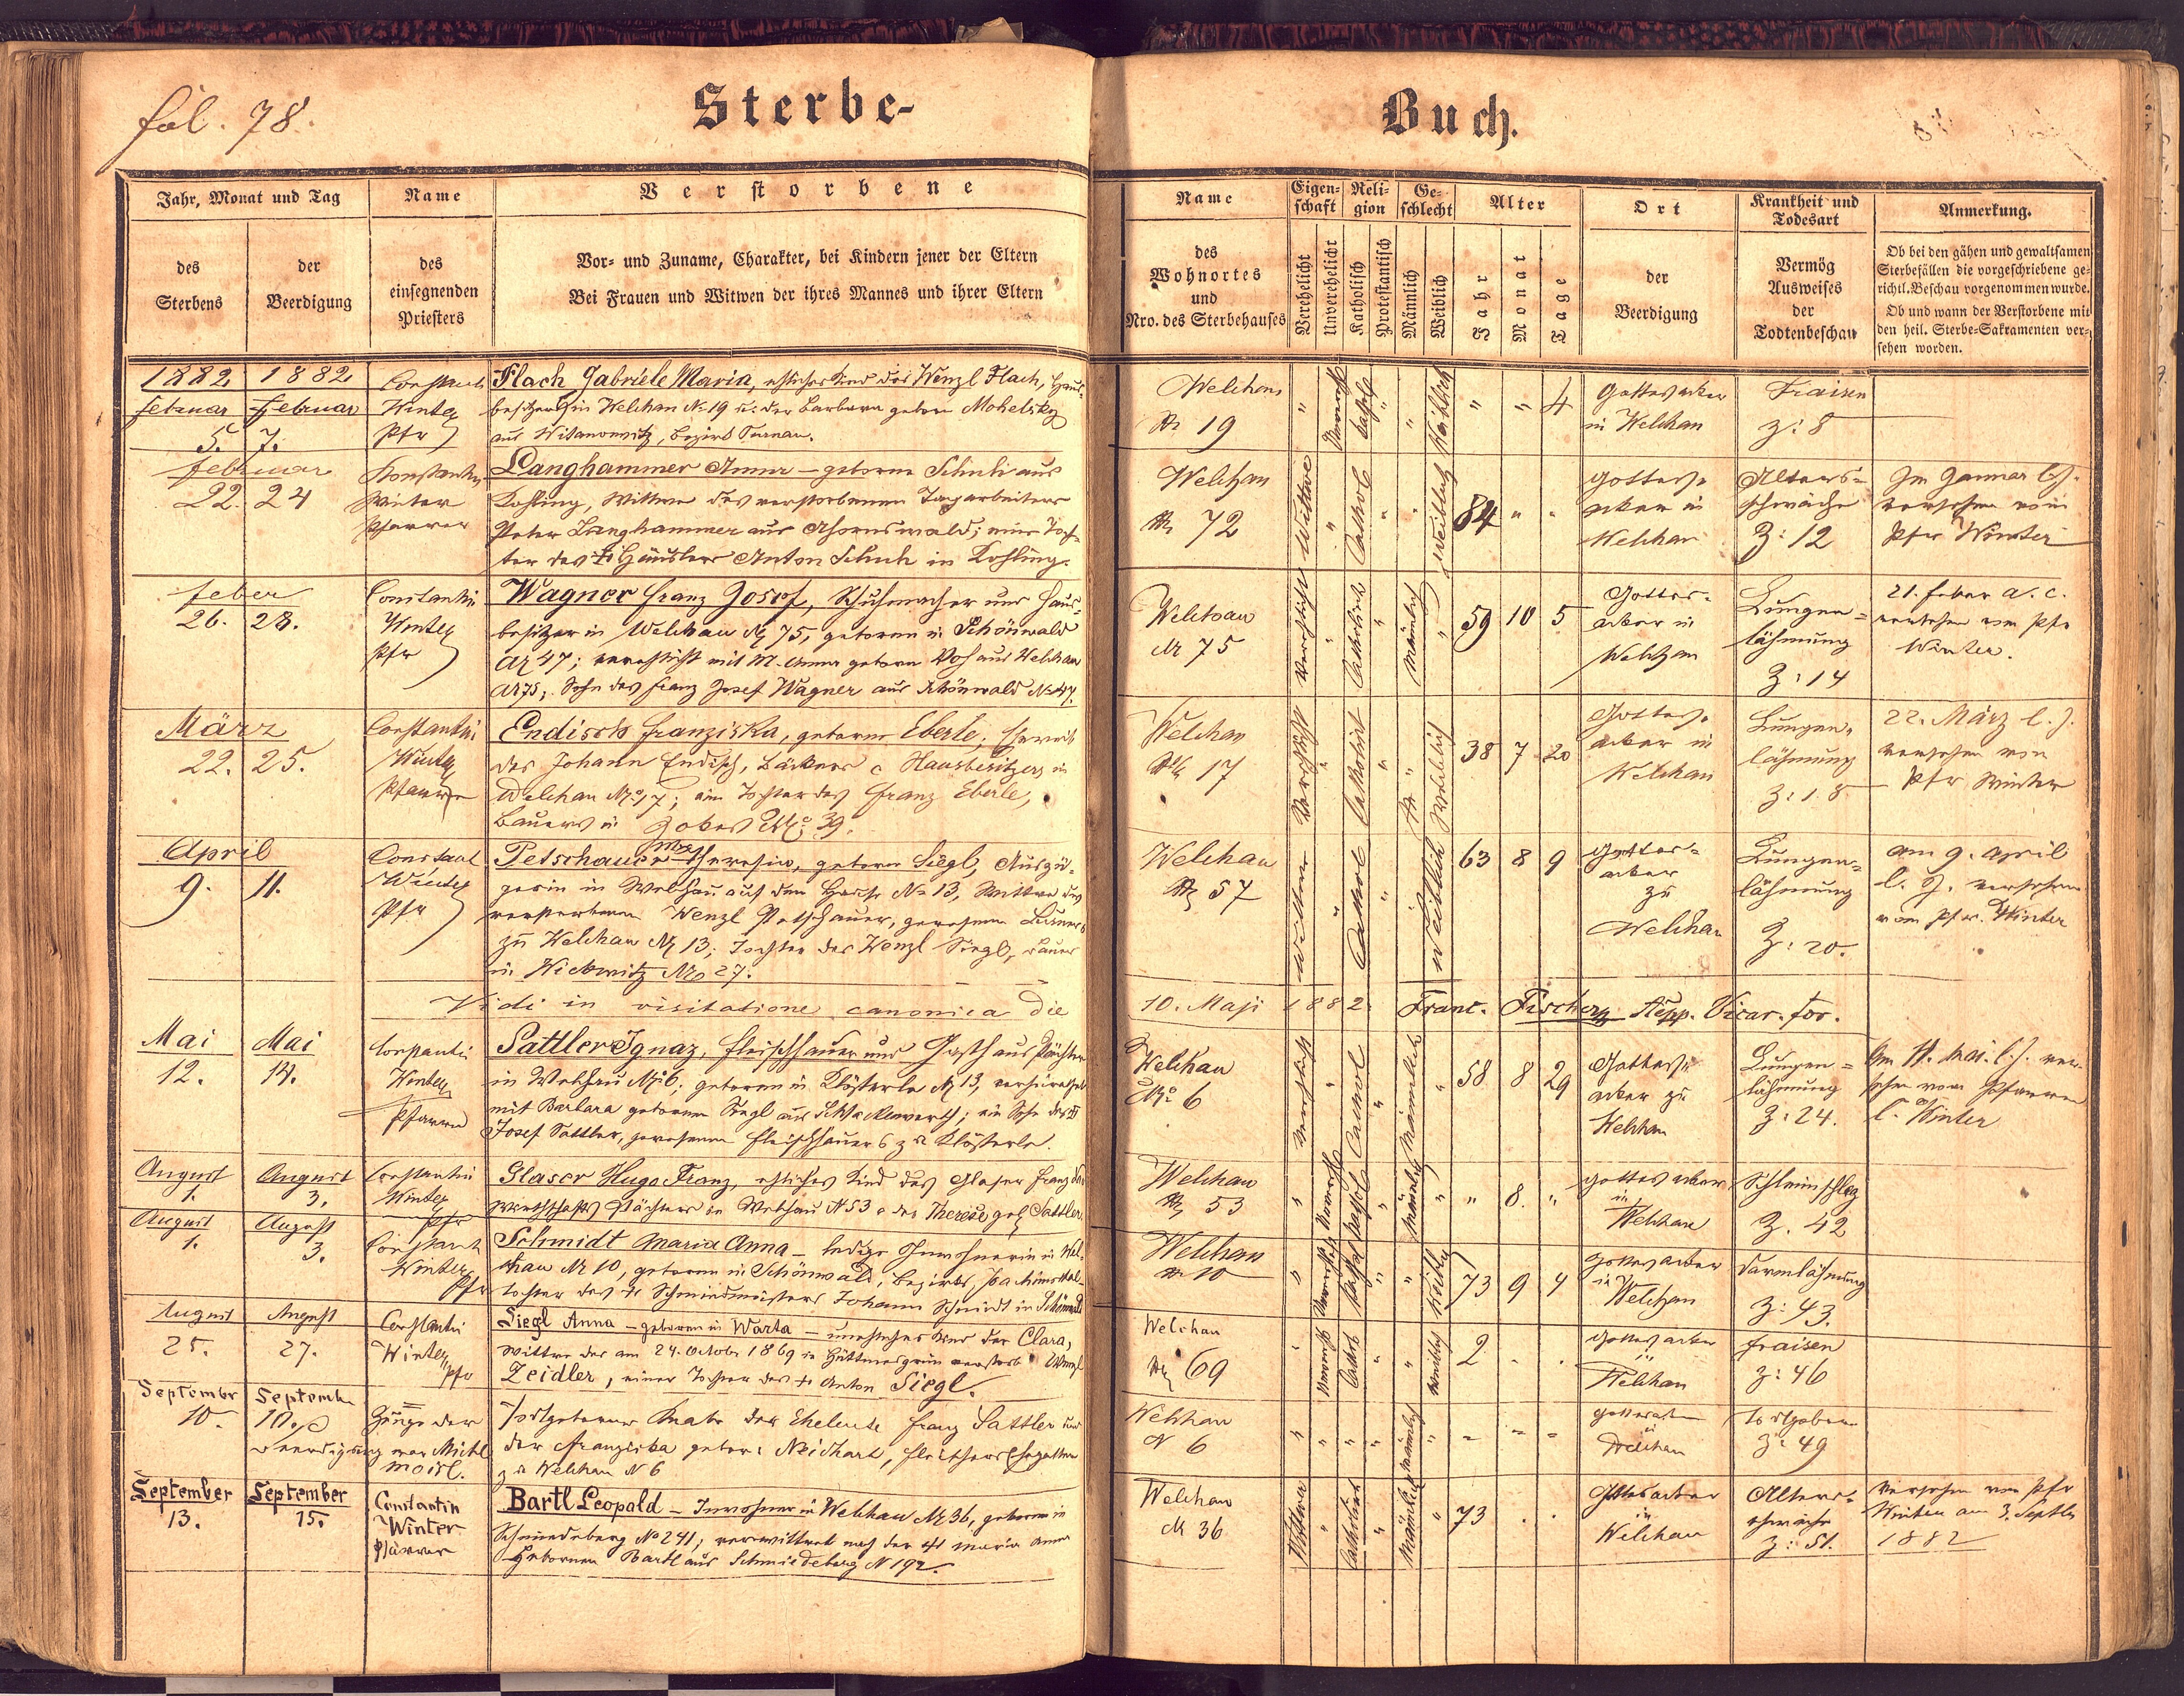 fol. 78.
Sterbe-
Buch.
Jahr, Monat und Tag
des Sterbens
der Beerdigung
Name
des einsegnenden Priesters
Verstorbene
Vor- und Zuname, Charakter, bei Kindern jener der Eltern
Bei Frauen und Witwen der ihres Mannes und ihrer Eltern
Name
des Wohnortes und Nro. des Sterbehauses
Eigenschaft
Verehelicht
Unverehelicht
Religion
Katholisch
Protestantisch
Geschlecht
Männlich
Weiblich
Alter
Jahr
Monat
Tage
Ort
der Beerdigung
Krankheit und Todesart
Vermög Ausweises der Todtenbeschau
Anmerkung.
Ob bei den gähen und gewaltsamen
Sterbefällen die vorgeschriebene ge-
richtl. Beschau vorgenommen wurde.
Ob und wann der Verstorbene mit
den heil. Sterbe-Sakramenten ver-
sehen worden.
1882 1882
Februar Februar
5. 7.
Winter
Pfr
Flach Gabriele Maria, eheliches Kind des Wenzl Flach, Haus-
besitzers in Welchau N 19 u. der Barbara geborne Mohelsky
aus Bezirk Turnau.
Welchau
N 19
" " 4
Gottesacker
in Welchau
Fraisen
Z: 8
Februar
22. 24
Konstantin
Winter
Pfarrer
Langhammer Anna – geborne Schuh aus
Kohling, Wittwe des verstorbenen Tagarbeiters
Peter Langhammer aus Ahornswald; eine Toch-
ter des † Häuslers Anton Schuh in Kohling.
Welchau
N 72
Wittwe
Kathol
weiblich
84 " "
Gottes-
acker in
Welchau
Alters-
schwäche
Z: 12
Im Jänner l. J.
versehen vom
Pfr Winter
Feber
26. 28.
Constantin
Winter
Pfr
Wagner Franz Josef, Schuhmacher und Haus-
besitzer in Welchau N 75, geboren in Schönwald
N 47; verehelicht mit M. Anna geborne aus Welchau
N 75; Sohn des Franz Josef Wagner aus Schönwald N 47.
Welchau
N 75
verehelicht
männlich
59 10 5
Gottes-
acker in
Welchau
Lungen-
lähmung
Z: 14
21. Feber a. c.
versehen vom Pfr
Winter.
März
22. 25.
Constantin
Winter
Pfarrer
Endisch Franziska, geborne Eberle, Eheweib
des Johann Endisch, Bäckers & Hausbesitzers in
Welchau N 17; eine Tochter des Franz Eberle,
Bauers in No 39.
Welchau
N 17
Verehelicht
Weiblich
38 7 20
Gottes-
acker in
Welchau
Lungen-
lähmung
Z: 18
22. März l. J.
versehen von
Pfr Winter
April
9. 11.
Winter
Pfr
Petschauer Theresia, geborne Siegl, Auszü-
gerin in Welchau auf dem Hause N 13, Wittwe des
verstorbenen Wenzl Petschauer, gewesenen Bauers
zu Welchau N 13; Tochter des Wenzl Siegl, Bauer
in Wickwitz No 27.
Welchau
N 57
Wittwe
Kathol
weiblich
63 8 9
Gottes-
acker
zu
Welchau
Lungen-
lähmung
Z: 20.
am 9. April
l. J. versehen
vom Pfr. Winter
Vidi in visitatione canonica die 10. Maji 1882. Franc. Fischer, Vicar. for.
Mai Mai
12. 14.
Constantin
Winter
Pfarrer
Sattler Ignaz, Fleischhauer und Gasthauspächter
in Welchau N 6; geboren in Klösterle N 13, verheirathet
mit Barbara geborenen Siegl aus Schlackenwerth; ein Sohn des †
Josef Sattler, gewesenen Fleischhauers zu Klösterle.
Welchau
No 6
verehelicht
männlich
58 8 29
Gottes-
acker zu
Welchau
Lungen-
lähmung
Z: 24.
Am 11. Mai l. J. ver-
sehen vom Pfarrer
C. Winter
August August
1. 3.
Constantin
Winter
Pfr
Glaser Hugo Franz, eheliches Kind des Glaser Franz,
Wirthschafts Pächters in Welchau N 53 & der Therese geb Sattler.
Welchau
N 53
männlich
" 8. "
Gottesacker
in
Welchau
Z. 42
August August
1. 3.
Winter
Pfr
Schmidt Maria Anna – ledige Inwohnerin in Wel-
chau N 10, geboren in Schönwald, Bezirks Joachimsthal –
Tochter des † Schmiedmeisters Johann Schmidt in Schönwald
Welchau
N 10
73 9 4
Gottesacker
in
Welchau
Darmlähmung
Z: 43.
August August
25. 27.
Constantin
Winter
Pfr
Siegl Anna – geboren in Warta – uneheliches Kind der Clara,
Wittwe des am 24. October 1869 in Hüttmesgrün verstorb. Wenzl
Zeidler, einer Tochter des † Anton Siegl.
Welchau
N 69
2 . .
Gottesacker
in
Welchau
Fraisen
Z: 46
September September
10. 10.
Zeuge der
Beerdigung war Michl
Moisl.
Todtgeborner Knabe der Eheleute Franz Sattler und
der Franziska geborne Neidhart,
zu Welchau N 6
Welchau
N 6
männlich
Gottesacker
Welchau
Todtgeboren
Z: 49
September September
13. 15.
Constantin
Winter
Pfarrer
Bartl Leopold – Inwohner in Welchau N 36, geboren in
Schmiedeberg No 241; verwittwet nach der † Maria Anna
Gebornen Bartl aus Schmiedeberg N 192.
Welchau
N 36
Wittwer
männlich
73 . .
Gottesacker
in
Welchau
Alters-
schwäche
Z: 51.
Versehen vom Pfr
Winter am 3. Septbr
1882